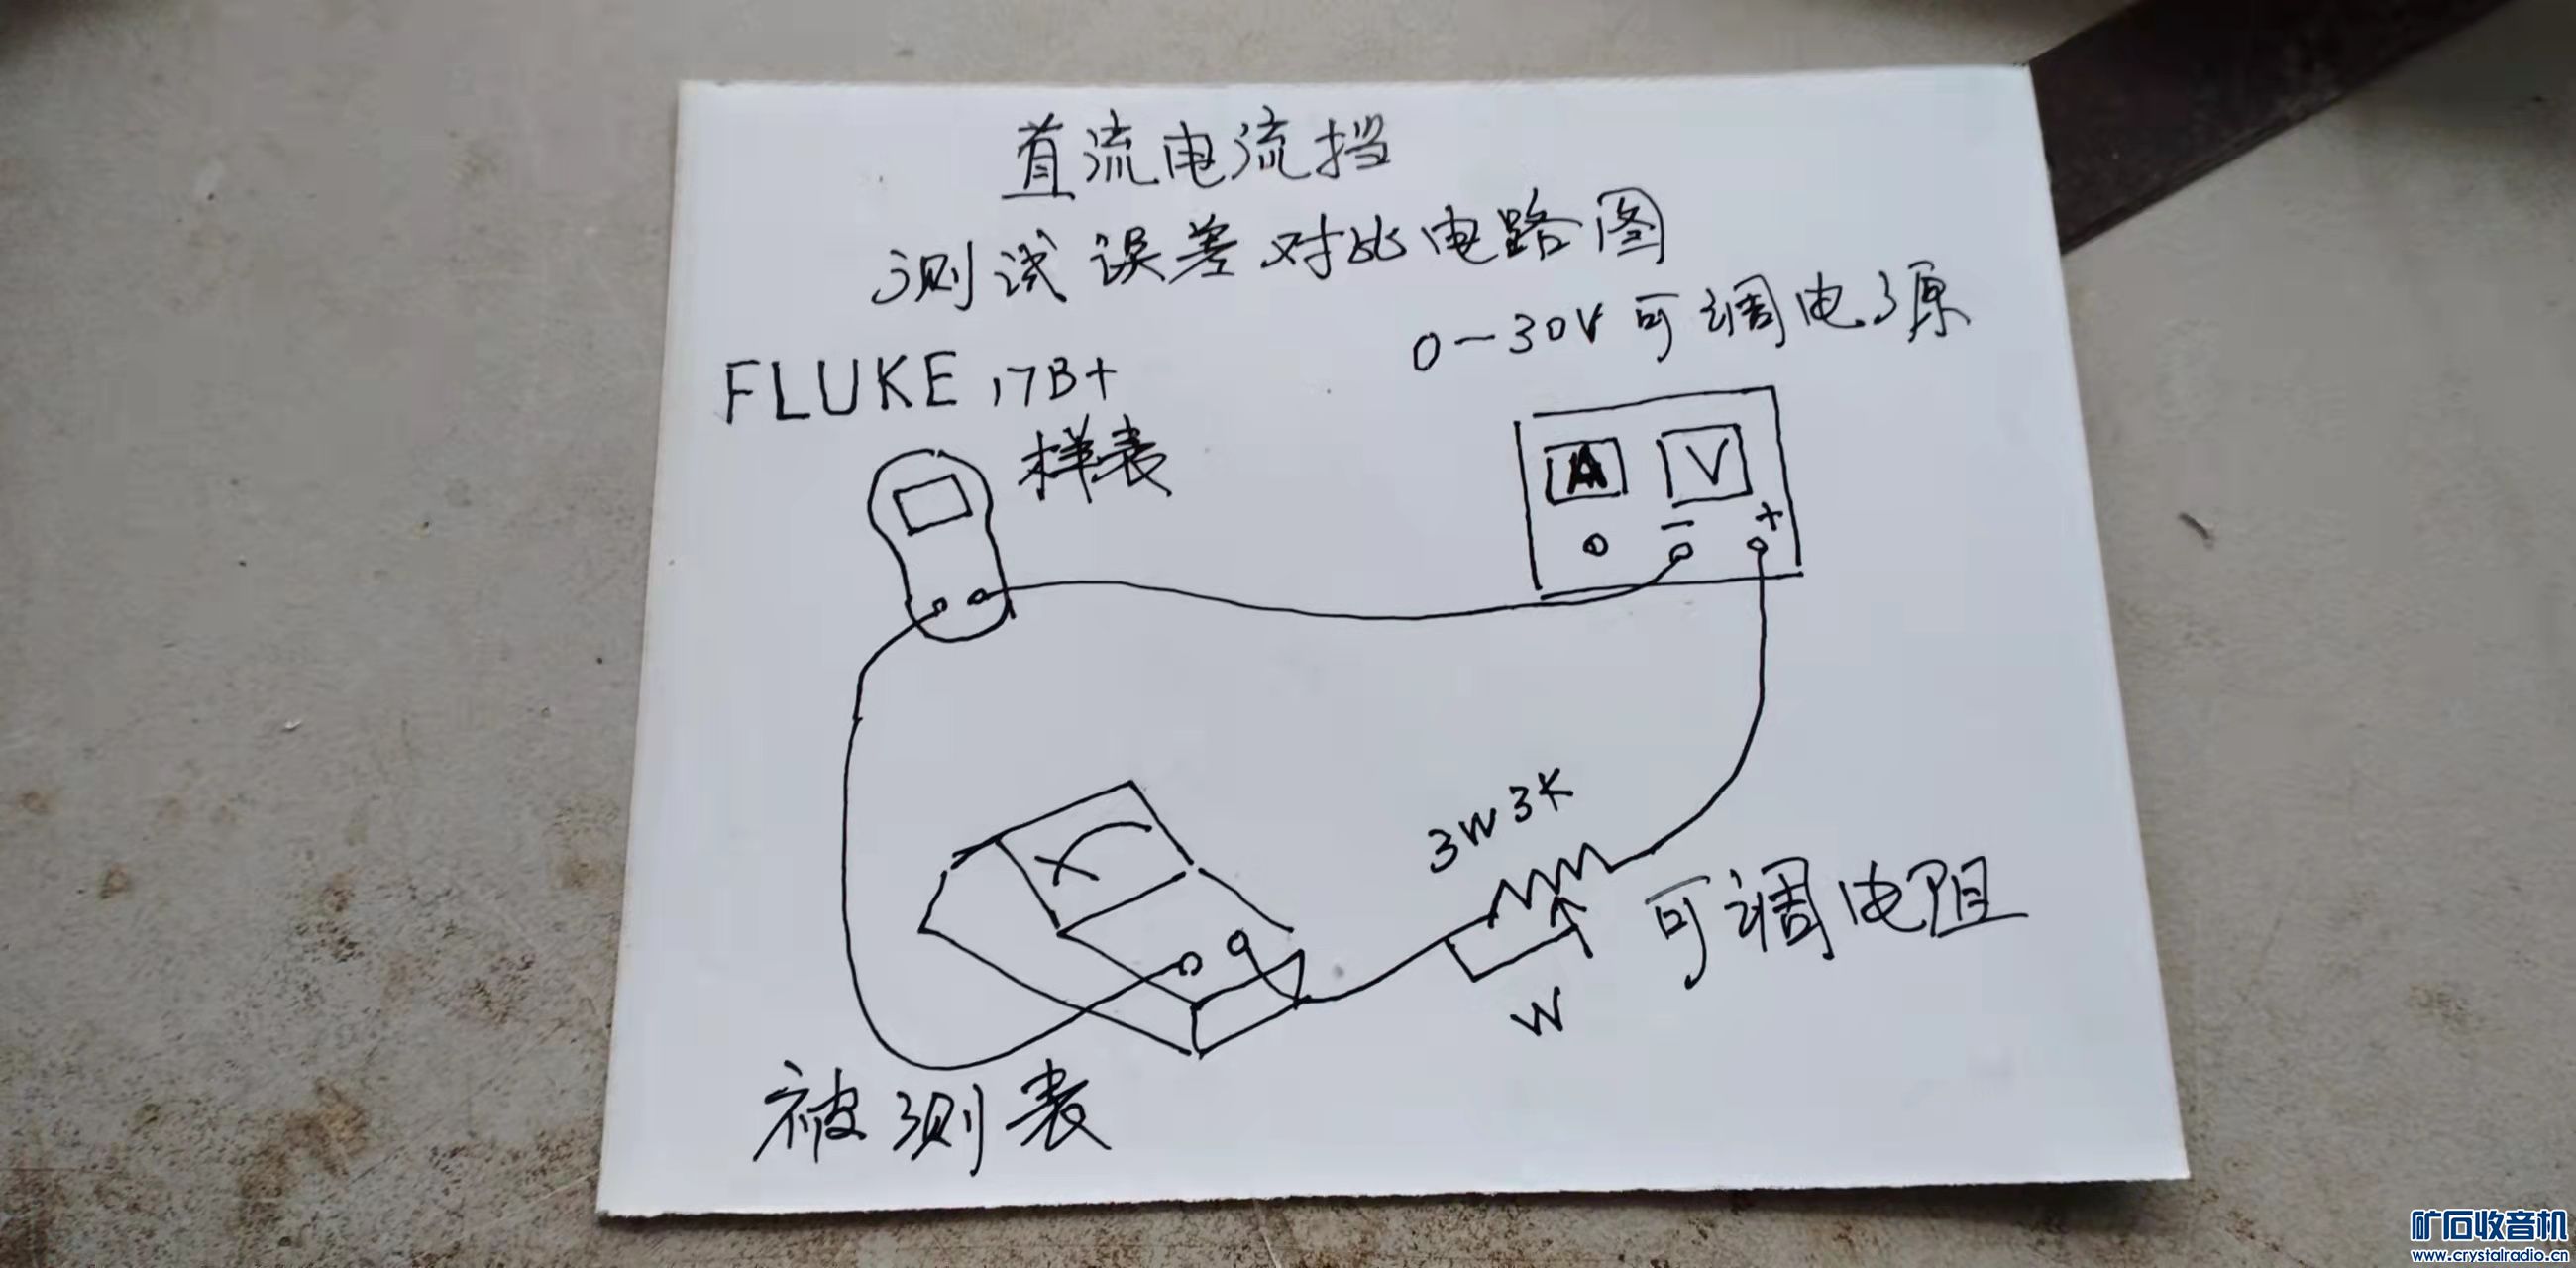 直流电流挡
测试误差对比电路图
0-30V可调电源
FLUKE 17B+
样表
A V
- +
3W3K
可调电阻
W
被测表
矿石收音机
www.crystalradio.cn